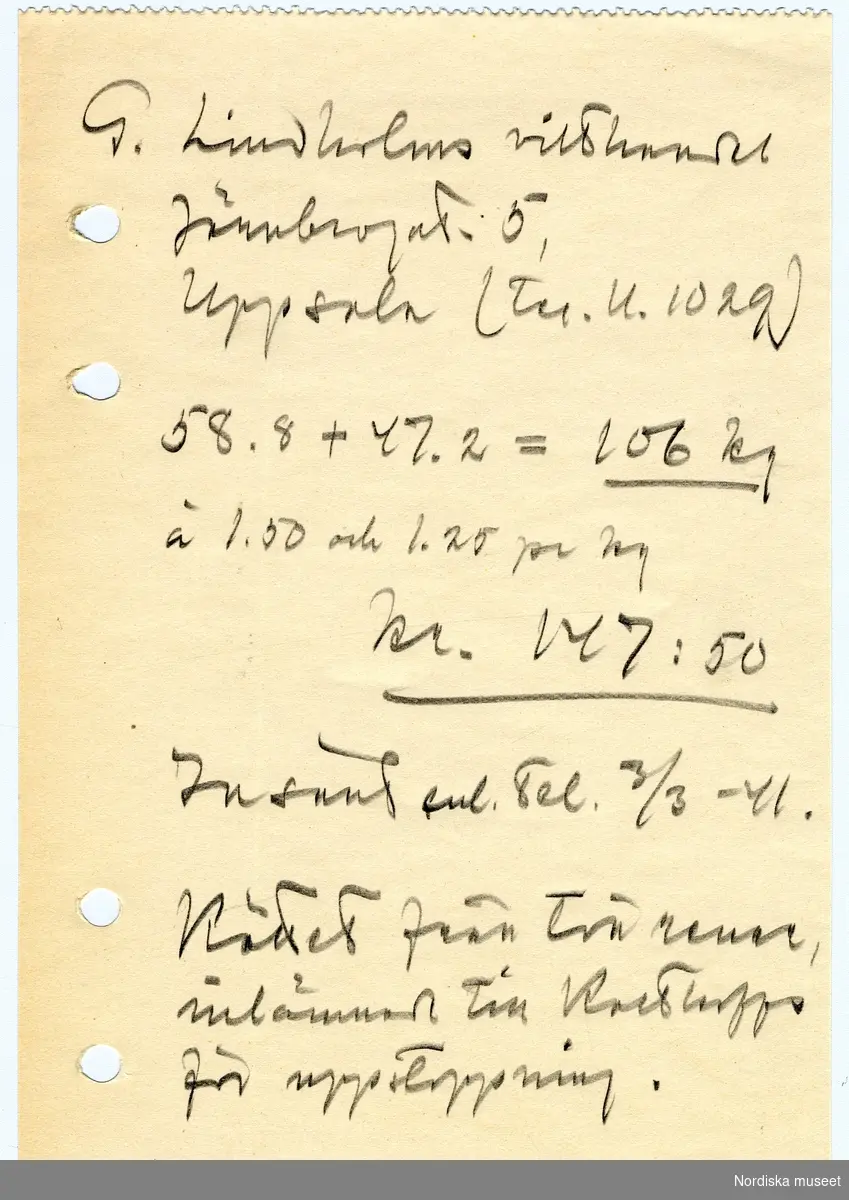 G. Lindholms vilthandel
Järnbrogat. 5,
Uppsala (Tel. U. 1029)
58.8 + 47.2 = 106 kg
à 1.50 och 1.25 pr kg
kr. 147:50
Insänt enl. tel. 3/3 -41.
Köttet från två renar,
inlämnade till
för uppstoppning.
Nordiska museet